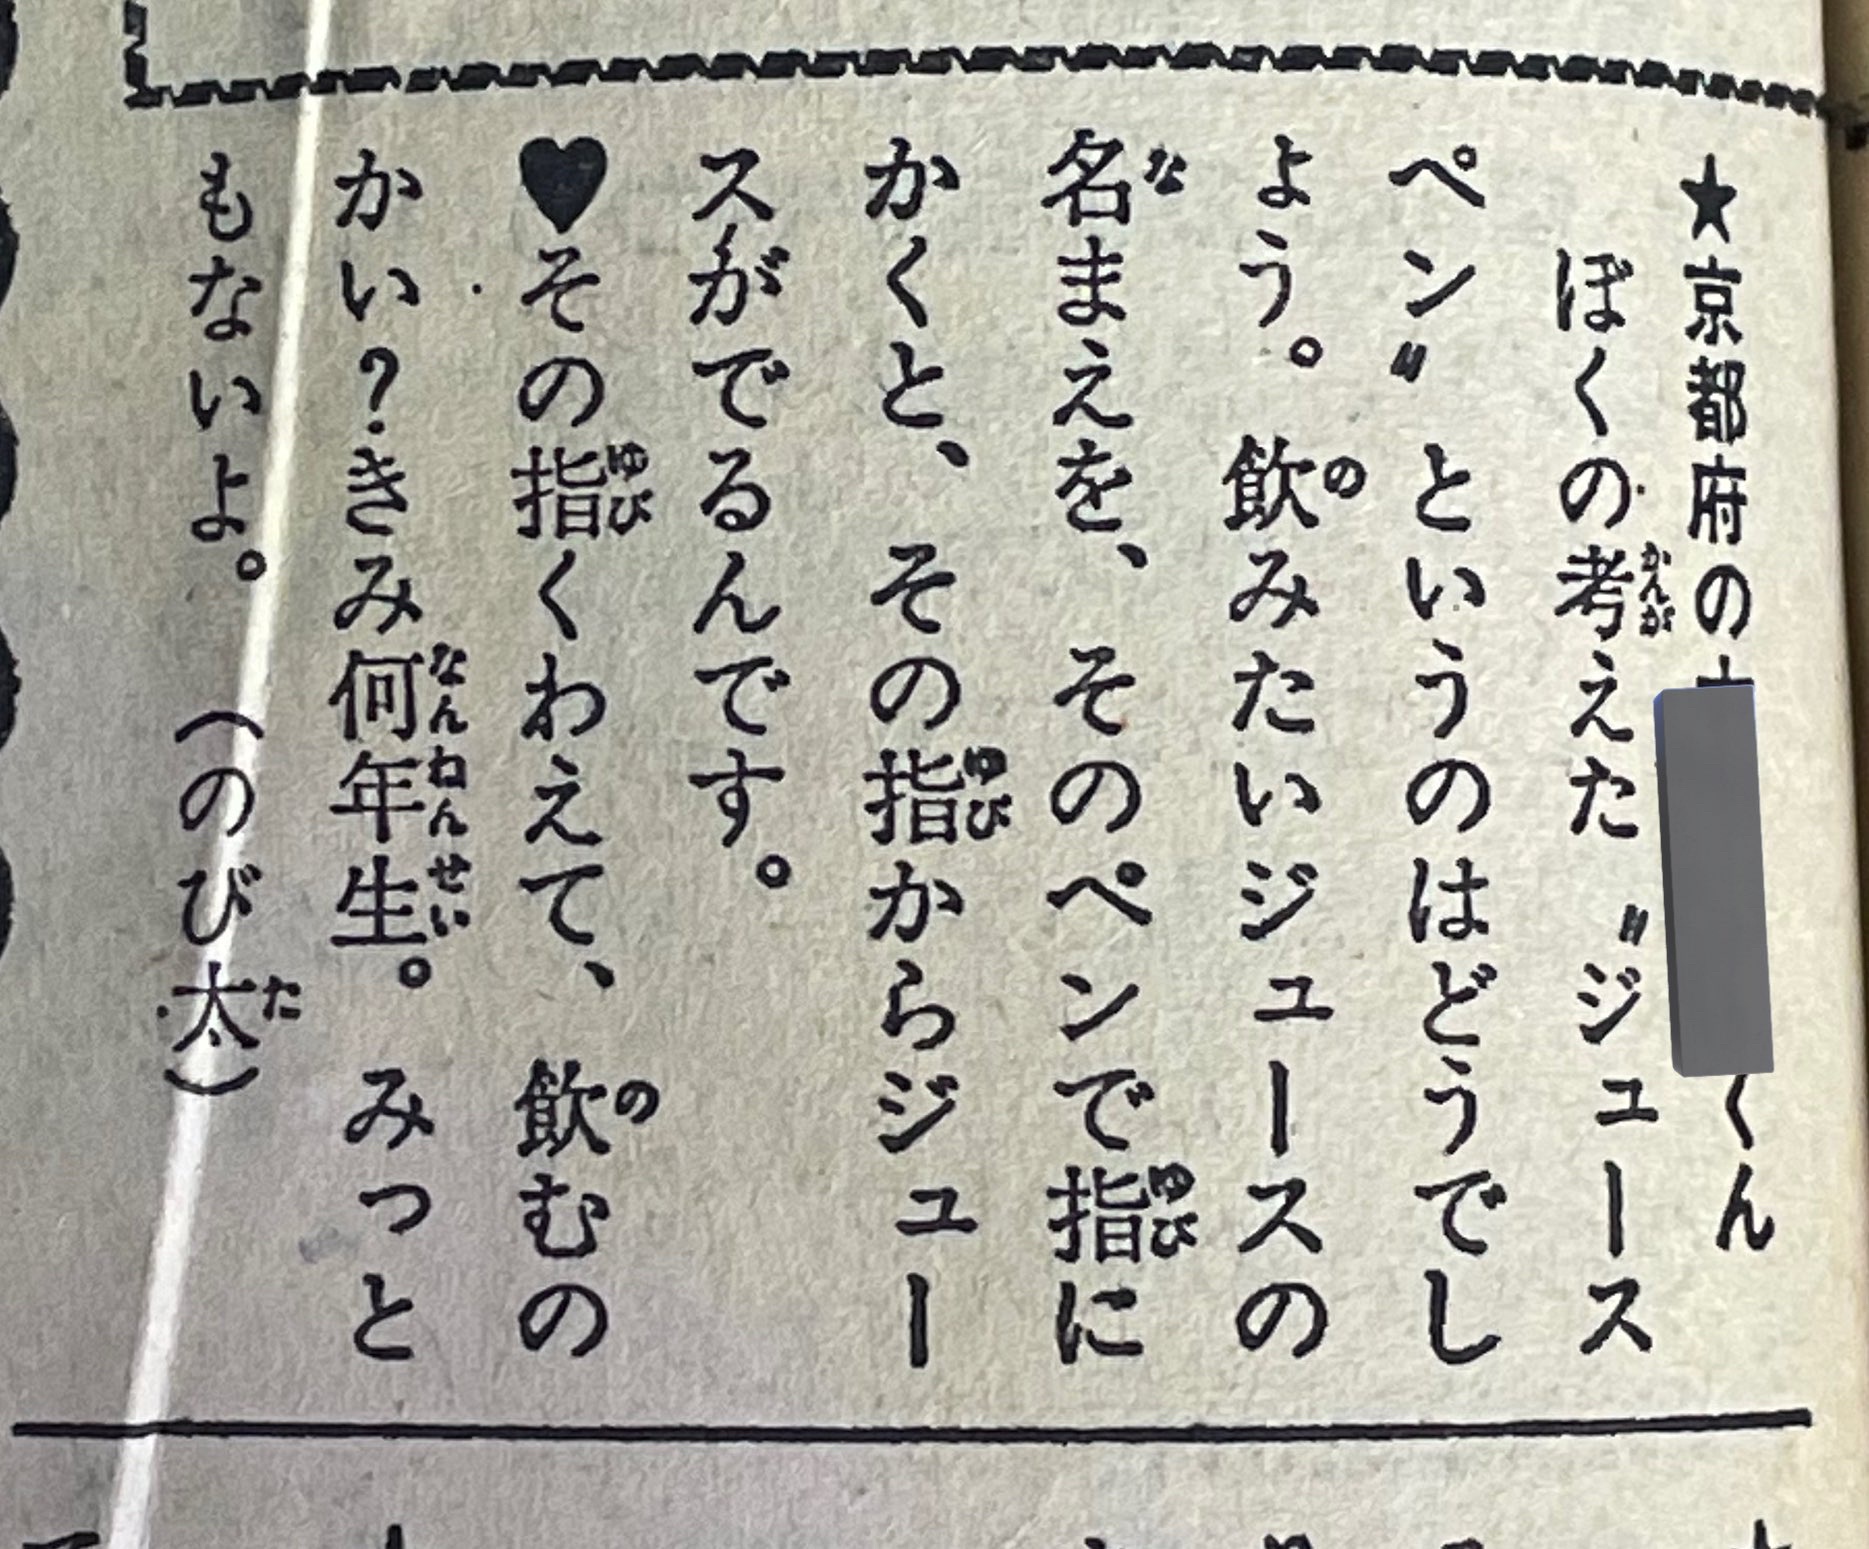 ★京都府の くん
ぼくの考えた〝ジュース
ペン〟というのはどうでし
ょう。飲みたいジュースの
名まえを、そのペンで指に
かくと、その指からジュー
スがでるんです。
♥その指くわえて、飲むの
かい？きみ何年生。みっと
もないよ。（のび太）